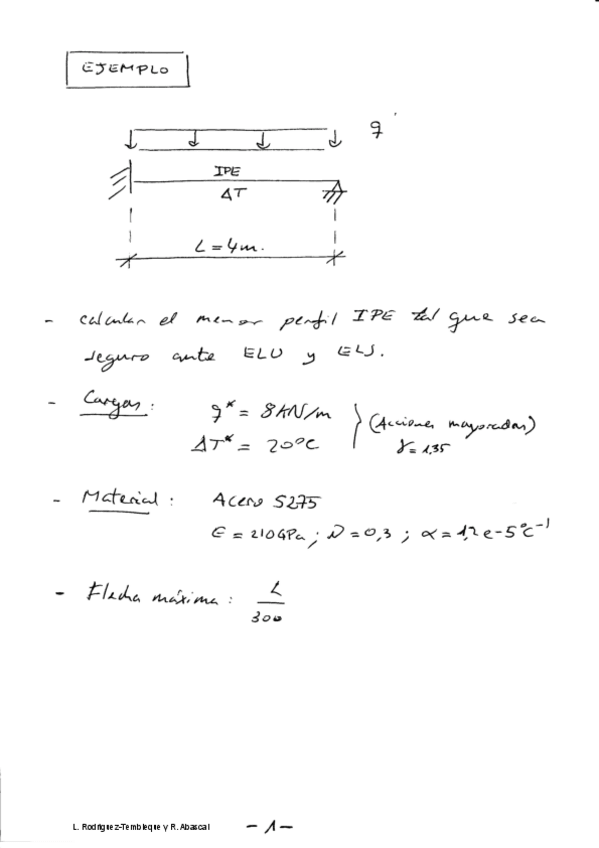 EJEMPLO
q
IPE
ΔT
L = 4m.
- calcular el menor perfil IPE tal que sea
seguro ante ELU y ELS.
- Cargas: q* = 8 kN/m
ΔT* = 20ºC
(Acciones mayoradas)
γ = 1,35
- Material: Acero S275
E = 210GPa; ν = 0,3; α = 1,2e-5ºC⁻¹
- Flecha máxima: L/300
L. Rodríguez-Tembleque y R. Abascal
- 1 -